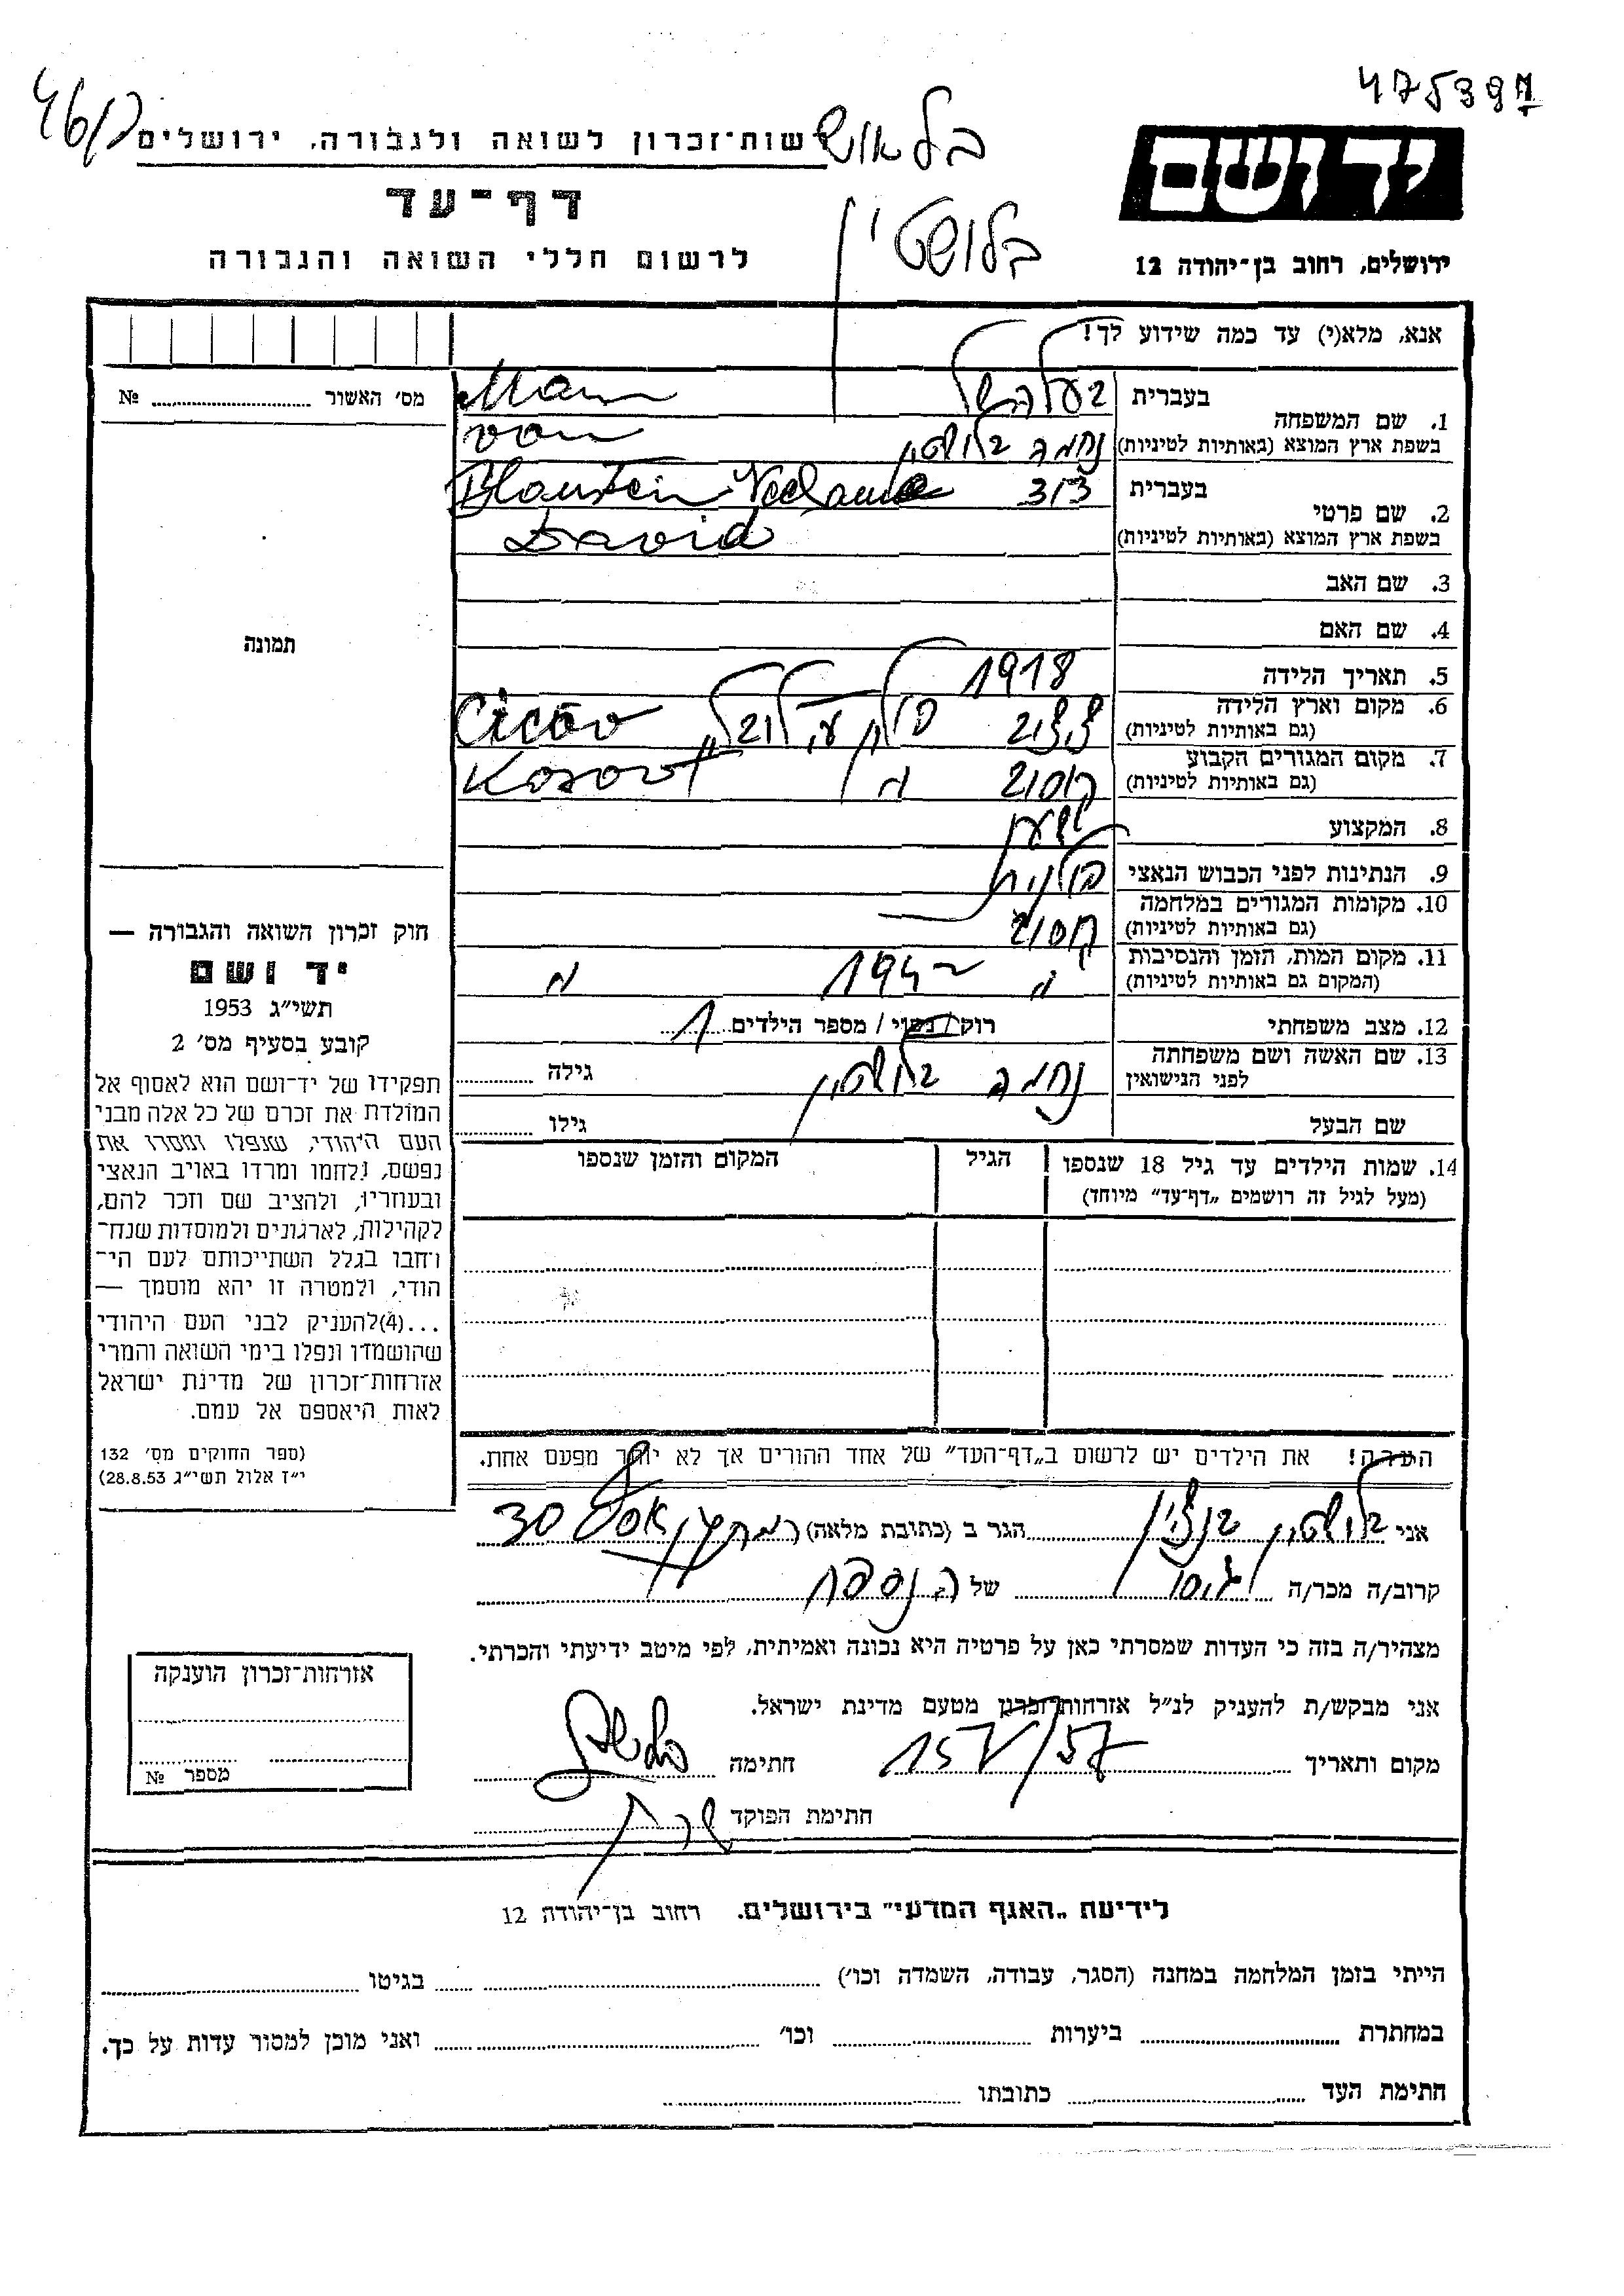 475397
46/7
בלאוש
רשות־זכרון לשואה ולגבורה, ירושלים
יד ושם
דף־עד
בלושטין
לרשום חללי השואה והגבורה
ירושלים, רחוב בן־יהודה 12
אנא, מלא(י) עד כמה שידוע לך!
מס׳ האשור № 
תמונה
1. שם המשפחה
בעברית בעלה של Mann
בשפת ארץ המוצא (באותיות לטיניות) נחמה בלושטין von
2. שם פרטי
בעברית דוד Blaustein Nechama
בשפת ארץ המוצא (באותיות לטיניות) David
3. שם האב
4. שם האם
5. תאריך הלידה 1918
6. מקום וארץ הלידה
(גם באותיות לטיניות)
7. מקום המגורים הקבוע
(גם באותיות לטיניות) קוסוב Kosov
8. המקצוע
9. הנתינות לפני הכבוש הנאצי פולנית
10. מקומות המגורים במלחמה
(גם באותיות לטיניות) קוסוב
11. מקום המות, הזמן והנסיבות
(המקום גם באותיות לטיניות) 194
12. מצב משפחתי רוק/נשוי/ מספר הילדים 1
13. שם האשה ושם משפחתה
לפני הנישואין נחמה בלושטין גילה
שם הבעל גילו
14. שמות הילדים עד גיל 18 שנספו
(מעל לגיל זה רושמים „דף־עד״ מיוחד)
הגיל
המקום והזמן שנספו
הערה! את הילדים יש לרשום ב„דף־העד״ של אחד ההורים אך לא יותר מפעם אחת.
חוק זכרון השואה והגבורה —
יד ושם
תשי״ג 1953
קובע בסעיף מס׳ 2
תפקידו של יד־ושם הוא לאסוף אל
המולדת את זכרם של כל אלה מבני
העם היהודי, שנפלו ומסרו את
נפשם, נלחמו ומרדו באויב הנאצי
ובעוזריו, ולהציב שם וזכר להם,
לקהילות, לארגונים ולמוסדות שנח־
רחבו בגלל השתייכותם לעם הי־
הודי, ולמטרה זו יהא מוסמך —
...(4)להעניק לבני העם היהודי
שהושמדו ונפלו בימי השואה והמרי
אזרחות־זכרון של מדינת ישראל
לאות היאספם אל עמם.
(ספר החוקים מס׳ 132
י״ז אלול תשי״ג 28.8.53)
אני בלושטין בנציון הגר ב (כתובת מלאה) 30
קרוב/ה מכר/ה גיסו של הנספה
מצהיר/ה בזה כי העדות שמסרתי כאן על פרטיה היא נכונה ואמיתית, לפי מיטב ידיעתי והכרתי.
אני מבקש/ת להעניק לנ״ל אזרחות־זכרון מטעם מדינת ישראל.
מקום ותאריך 15 V/57 חתימה
חתימת הפוקד
אזרחות־זכרון הוענקה
מספר №
לידיעת „האגף המדעי״ בירושלים. רחוב בן־יהודה 12
הייתי בזמן המלחמה במחנה (הסגר, עבודה, השמדה וכו׳) בגיטו
במחתרת ביערות וכו׳ ואני מוכן למסור עדות על כך.
חתימת העד כתובתו